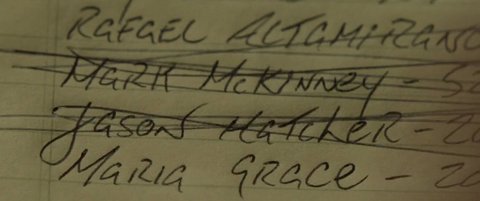 RAFAEL ALTAMIRANO
MARK McKINNEY - 52
JASON HATCHER - 20
MARIA GRACE - 20